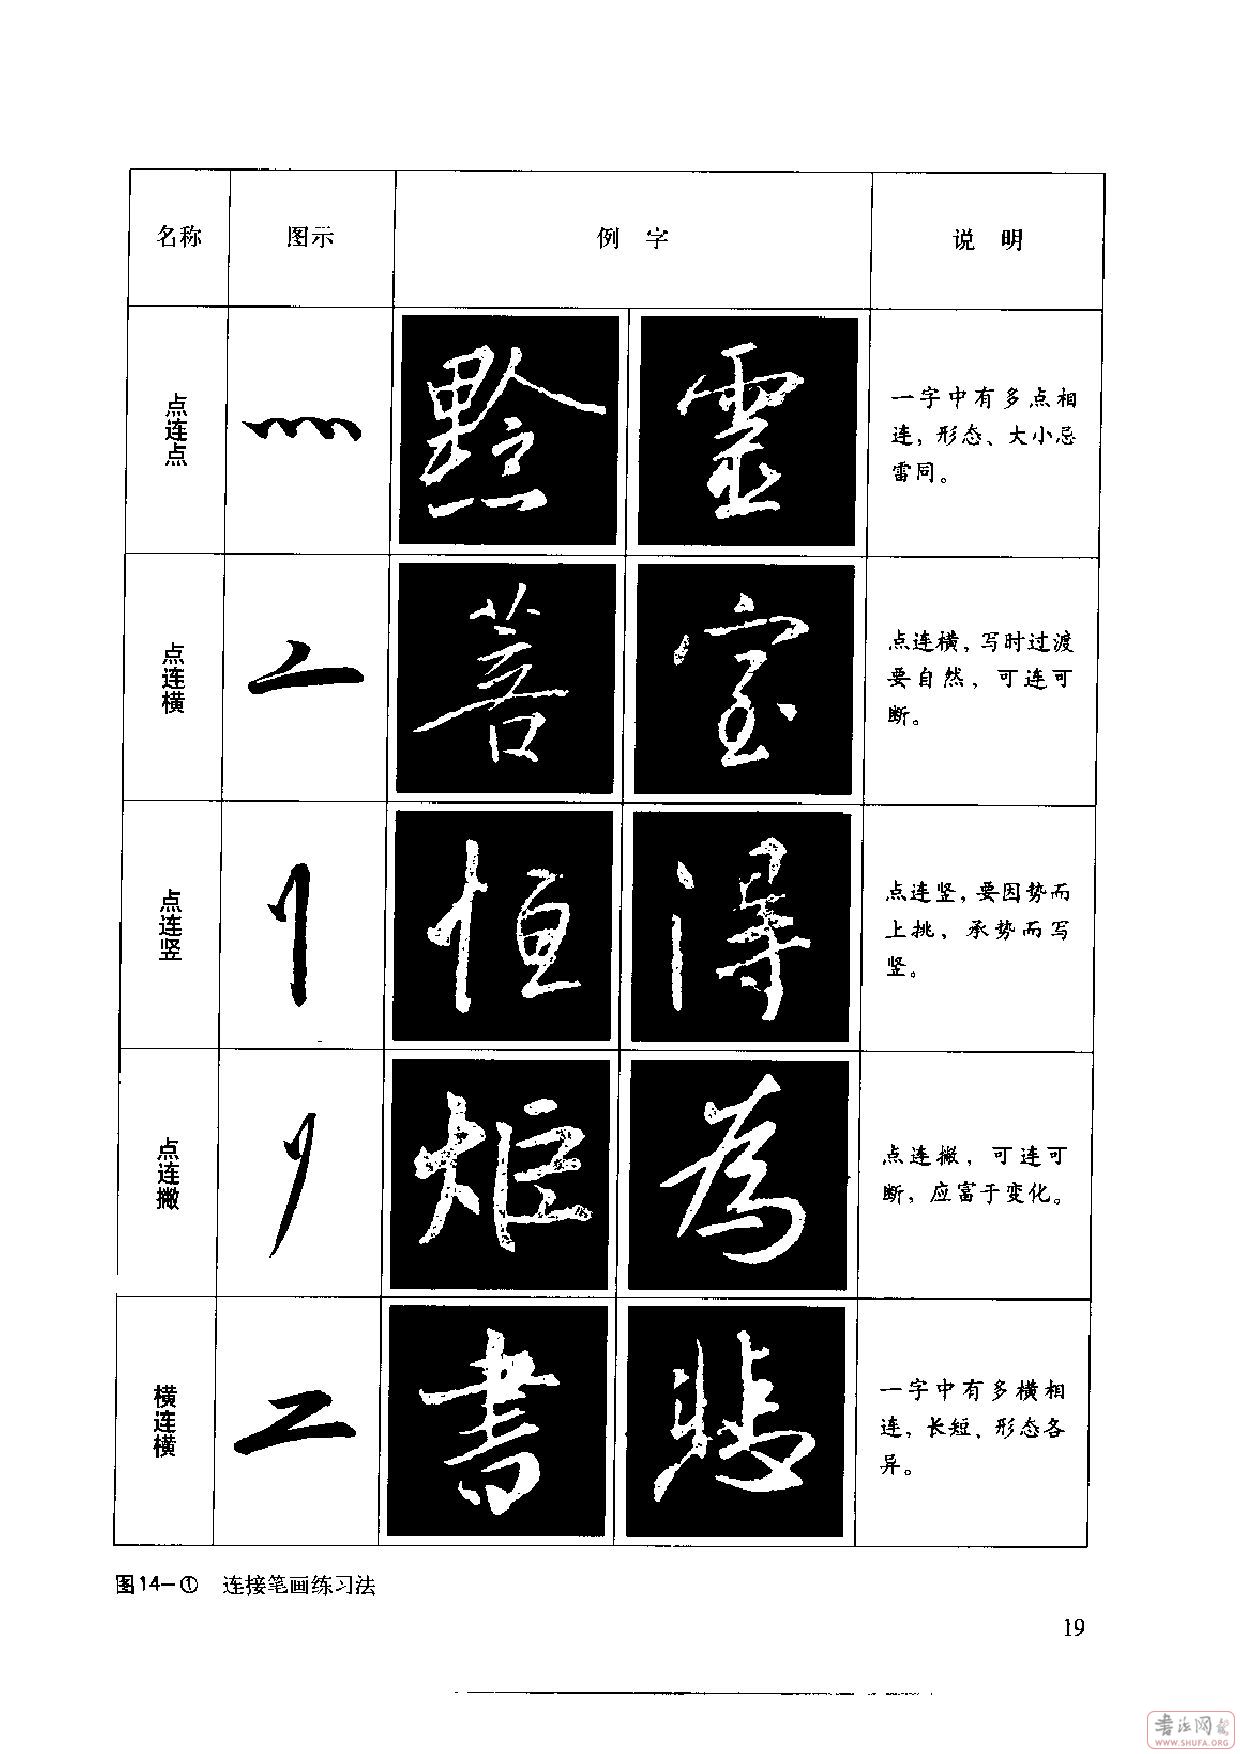 名称 图示 例 字 说 明
点连点
黔 靈
一字中有多点相
连，形态、大小忌
雷同。
点连横
菩 室
点连横，写时过渡
要自然，可连可
断。
点连竖
恒 得
点连竖，要因势而
上挑，承势而写
竖。
点连撇
炬 為
点连撇，可连可
断，应富于变化。
横连横
書 悲
一字中有多横相
连，长短、形态各
异。
图14—① 连接笔画练习法
19
書法网
WWW.SHUFA.ORG